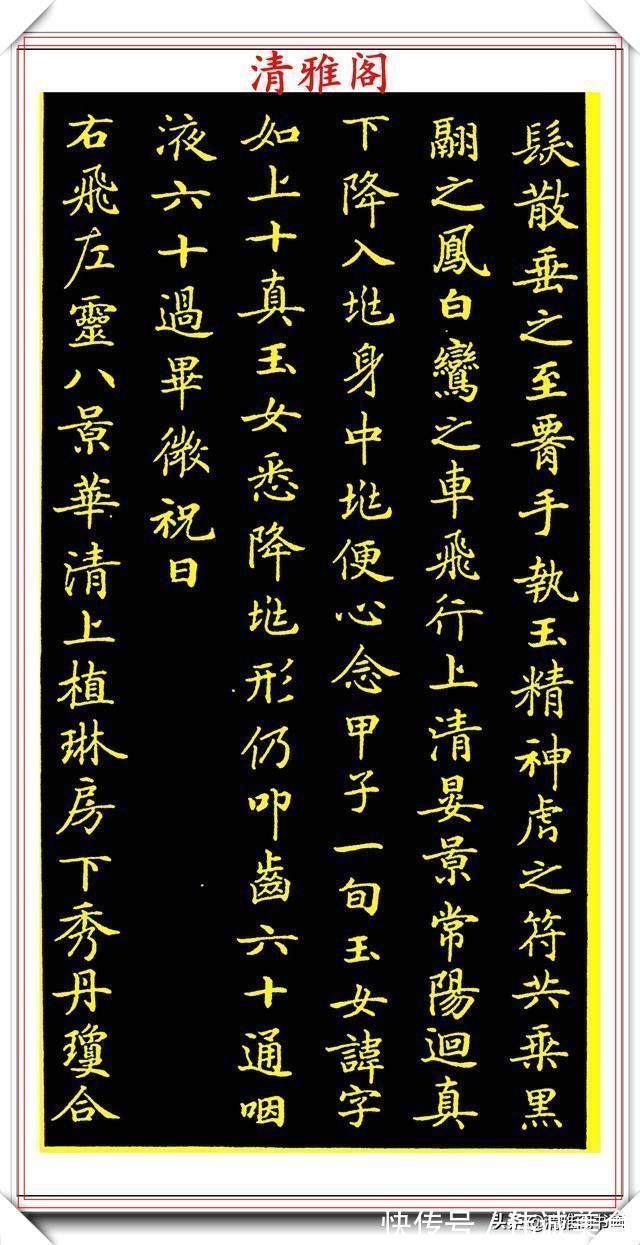 清雅阁
髮散垂之至青手執玉精神虎之符共乘黑
翮之鳳白鸞之車飛行上清晏景常陽迴真
下降入地身中地便心念甲子一旬玉女諱字
如上十真玉女悉降地形仍叩齒六十通咽
液六十過畢微祝曰
右飛左靈八景華清上植琳房下秀丹瓊合
快传号